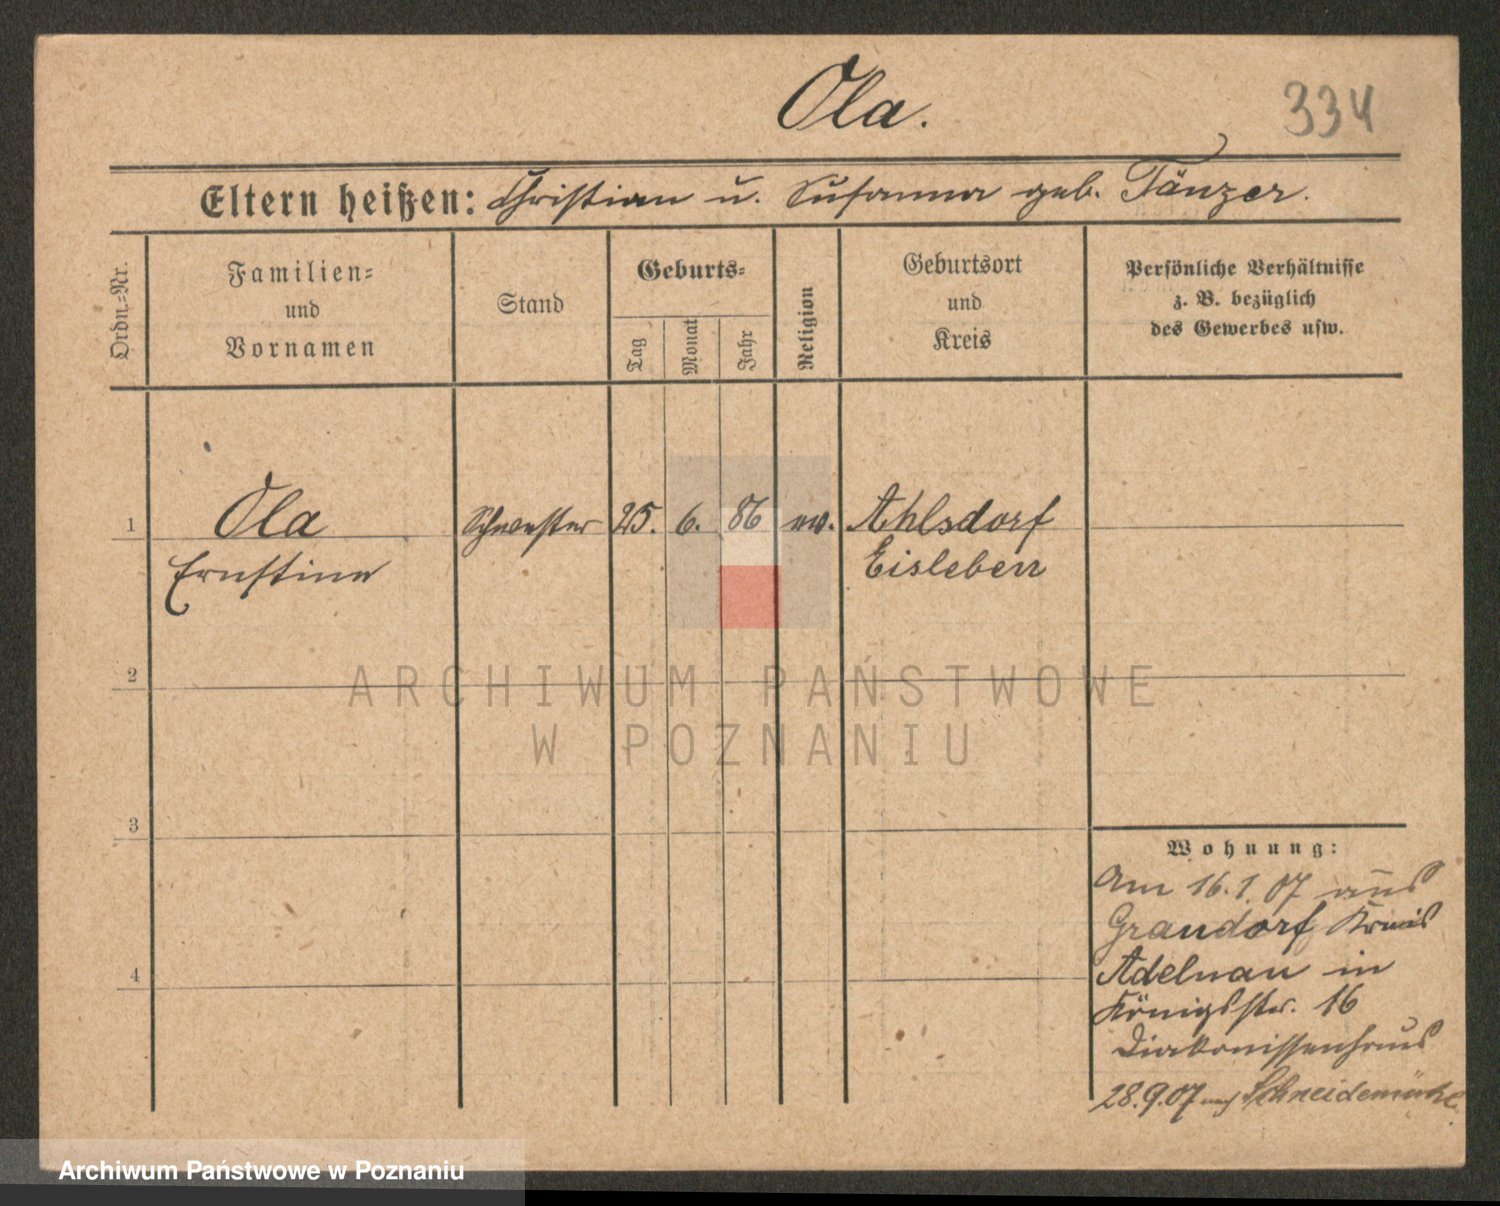 Ola.
334
Eltern heißen: Christian u. Susanna geb. Tänzer.
Ordn.=Nr.
Familien=
und
Vornamen
Stand
Geburts=
Tag
Monat
Jahr
Religion
Geburtsort
und
Kreis
Persönliche Verhältnisse
z. B. bezüglich
des Gewerbes usw.
1
Ola
Schwester
25.
6.
86
ev.
Ahlsdorf
Ernstine
Eisleben
2
ARCHIWUM PAŃSTWOWE
W POZNANIU
3
Wohnung:
Am 16.1.07 aus
Grandorf Kreis
4
Adelnau in
Königsstr. 16
Diakonissenhaus
28.9.07 nach Schneidemühl
Archiwum Państwowe w Poznaniu